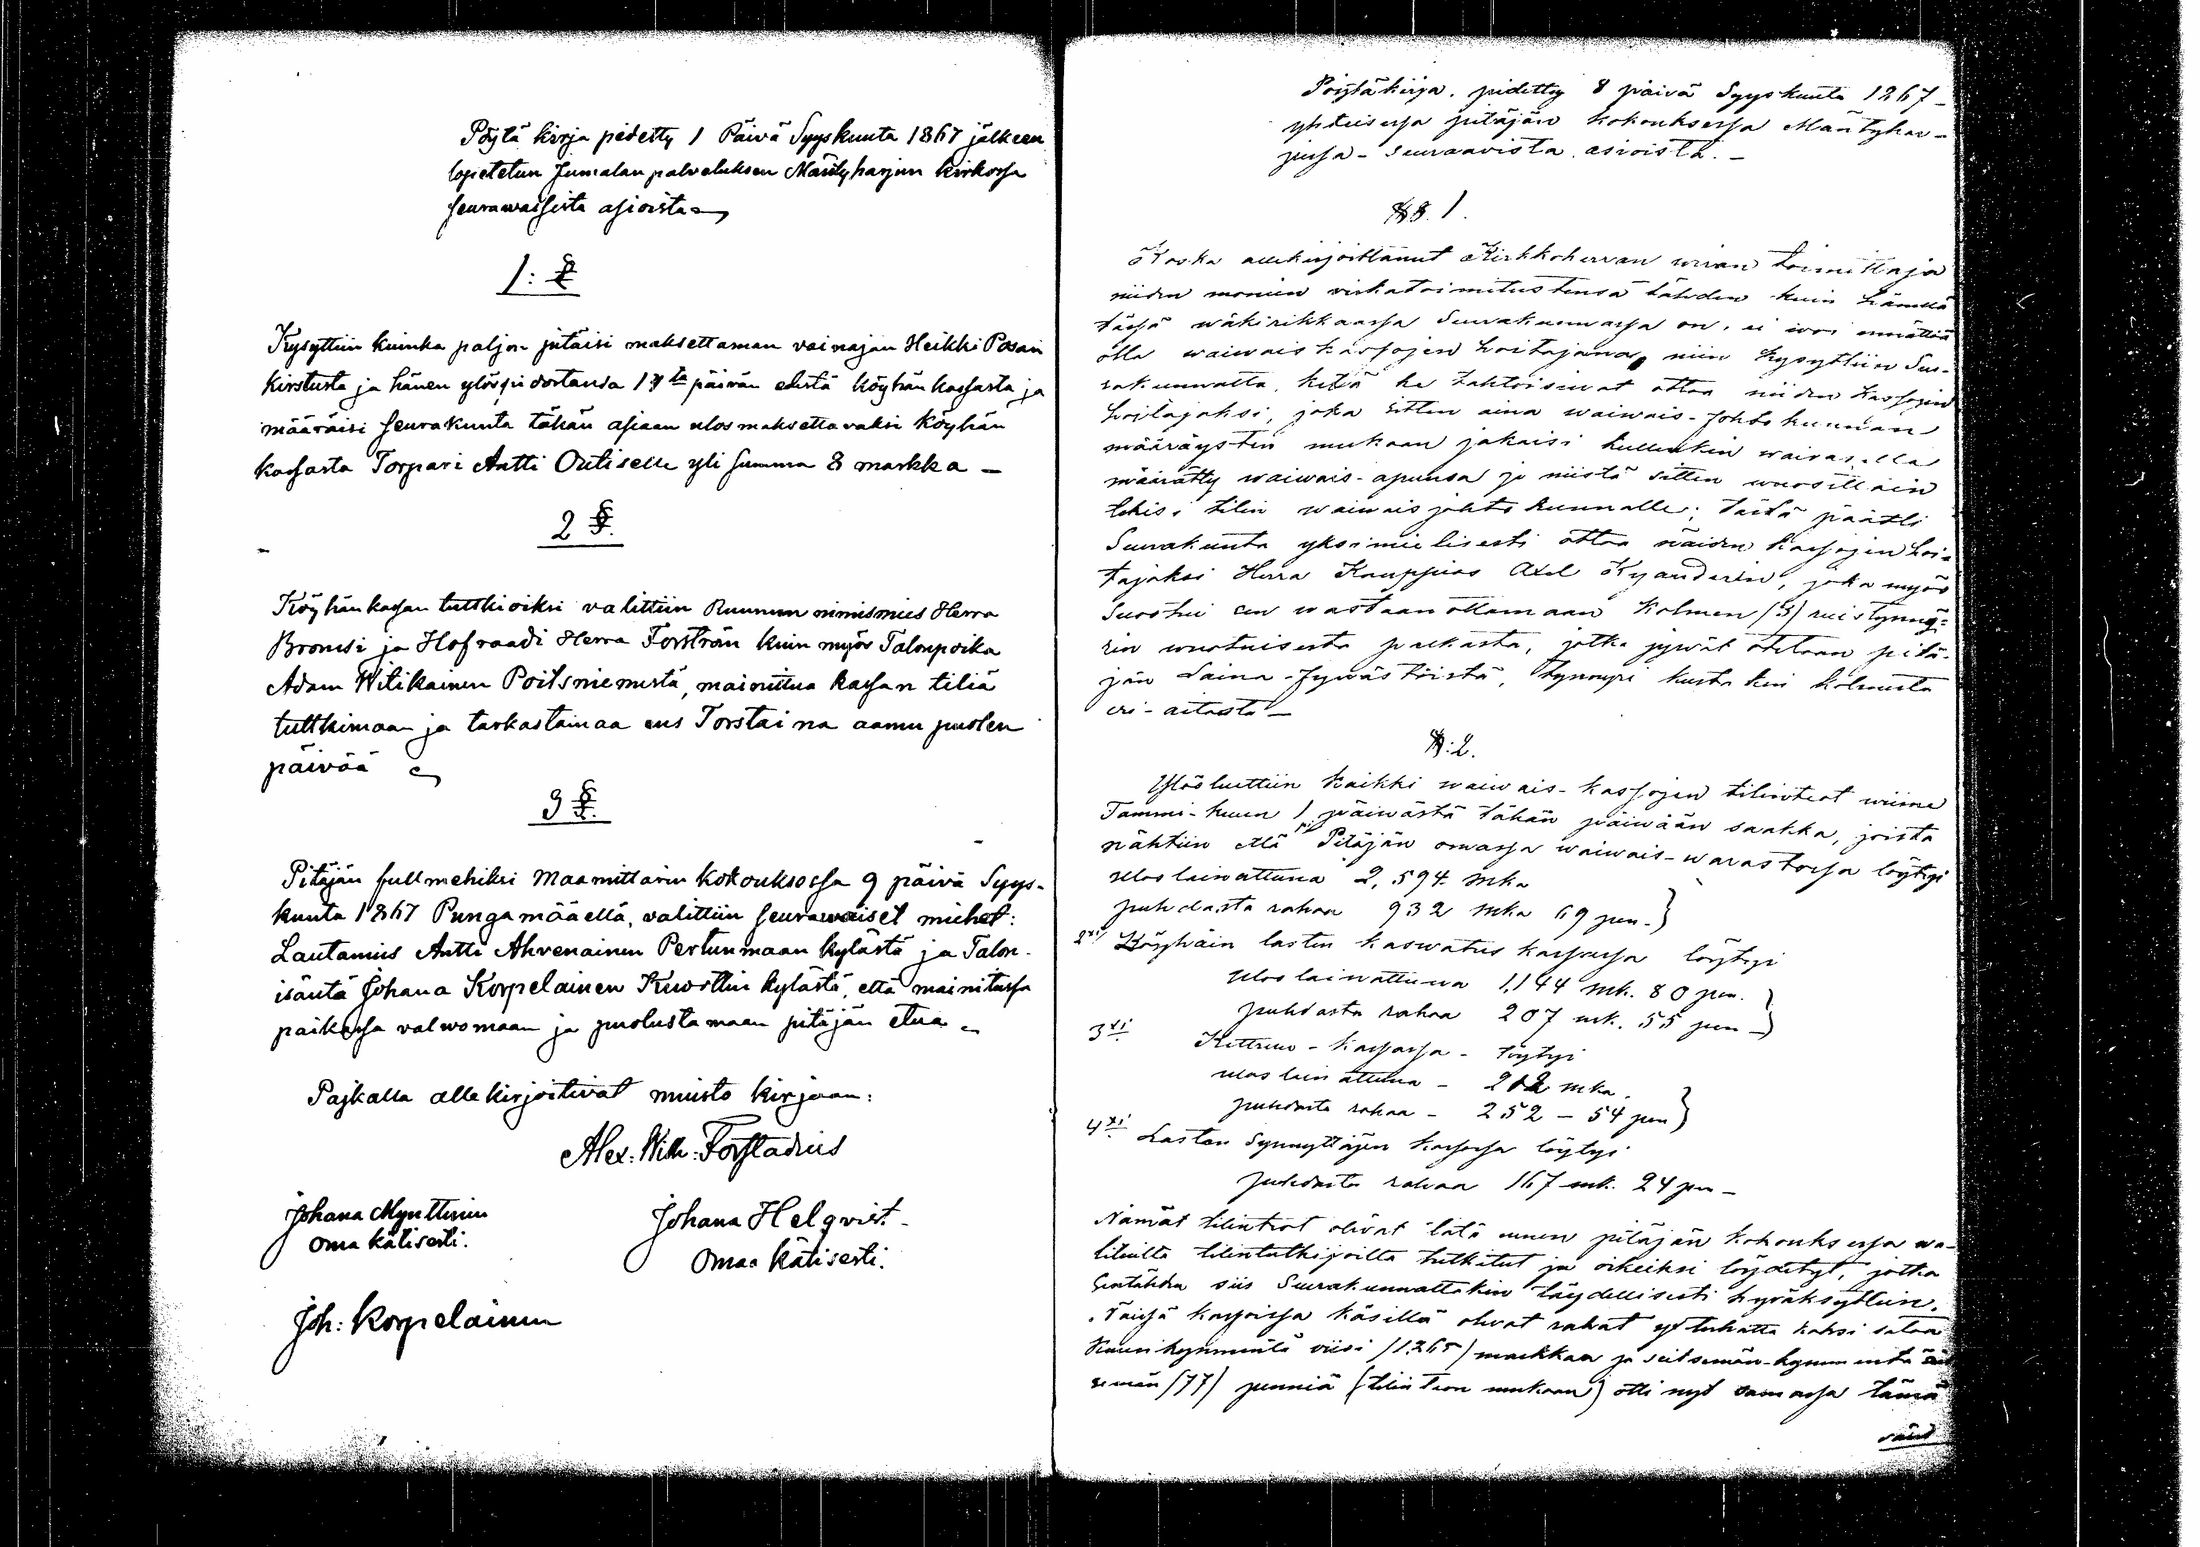 Pöytä kirja pidetty 1 Päivä Syyskuuta 1867 jälkeen
lopetetun Jumalan palveluksen Mäntyharjun kirkossa
seurawaisista asioista
1: §
Kysyttiin kuinka paljon pitäisi maksettaman vainajan Heikki Posan
kirstusta ja hänen ylöspidostansa 17ta päivän edestä köyhän kassasta ja
määräisi seurakunta tähän asiaan ulos maksettavaksi köyhän
kassasta Torpari Antti Outiselle yli summa 8 markka —
2 §.
Köyhän kassan tuttkioiksi valittiin Ruunun nimismies Herra
Bromsi ja Hofraadi Herra Forström kuin myös Talonpoika
Adam Witikainen Poitsniemestä, mainittua kassan tiliä
tuttkimaan ja tarkastamaa ens Torstaina aamu puolen
päivää
3 §.
Pitäjän fullmehiksi Maamittarin kokouksessa 9 päivä Syys-
kuuta 1867 Pungamäellä, valittiin seurawaiset miehet:
Lautamies Antti Ahvenainen Pertunmaan kylästä ja Talon-
isäntä Johana Korpelainen Kuorttin kylästä, että mainitussa
paikassa valwomaan ja puolustamaan pitäjän etua
Paikalla allekirjoitivat muisto kirjaan:
Alex: Wilh: Forstadius
Johana Mynttinen
oma kätisesti.
Johana Helqvist
Omaa kätisesti.
Joh: Korpelainen
Pöytäkirja, pidetty 8 päivä Syyskuuta 1867
yhteisessä pitäjän kokouksessa Mäntyhar-
jussa - seuraavista asioista. —
§. 1.
Koska allekirjoittanut Kirkkoherran wiran toimittaja
niiden monien virkatoimitustensa tähden kuin hänellä
tässä wäkirikkaassa Seurakunnassa on, ei woi ennättää
olla waiwaiskassojen hoitajana, niin kysyttiin Seu-
rakunnalta, ketä he tahtoisiwat ottaa niiden kassojen
hoitajaksi, joka sitten aina waiwais-Johtokunnan
määräysten mukaan jakaisi kullenkin waiwaselle
määrätty waiwais-apunsa ja niistä sitten wuosittain
tekisi tilin waiwaisjohtokunnalle; tästä päätti
Seurakunta yksimielisesti ottaa näiden kassojen hoi-
tajaksi Herra Kauppias Axel Kyanderin, joka myös
suostui sen wastaanottamaan kolmen (3) ruistynny-
rin wuotuisesta palkasta, jotka jywät otetaan pitä-
jän Laina-Jywästöistä, tynnyri kustakin kolmesta
eri-aitasta —
§: 2.
Ylösluettiin kaikki waiwais-kassojen tilinteot wiime
Tammi-kuun 1 päiwästä tähän päiwään saakka, joista
nähtiin että 1xi Pitäjän omassa waiwais-warastossa löytyi
ulos lainattuna 2,594 mka
puhdasta rahaa 932 mka 69 pen.
2xi Köyhäin lasten kaswatus kassassa löytyi
ulos lainattuna 1,144 mk. 80 pen.
puhdasta rahaa 207 mk. 55 pen —
3xi Kettruu-kassassa - löytyi
ulos lainattuna - 212 mka.
puhdasta rahaa - 252 - 54 pen
4xi Lasten Synnyttäjen kassassa löytyi
puhdasta rahaa 167 mk. 24 pen —
Nämät tilinteot olivat tätä ennen pitäjän kokouksessa wa-
lituilta tilintutkijoilta tutkitut ja oikeiksi löydetyt, jotka
sentähden siis Seurakunnaltakin täydellisesti hyväksyttiin.
Näissä kassoissa käsillä olevat rahat yx tuhatta kaksi sataa
kuusikymmentä viisi (1,265) markkaa ja seitsemän-kymmentä sei
semän (77) penniä (tilin teon mukaan) otti nyt samassa tämä